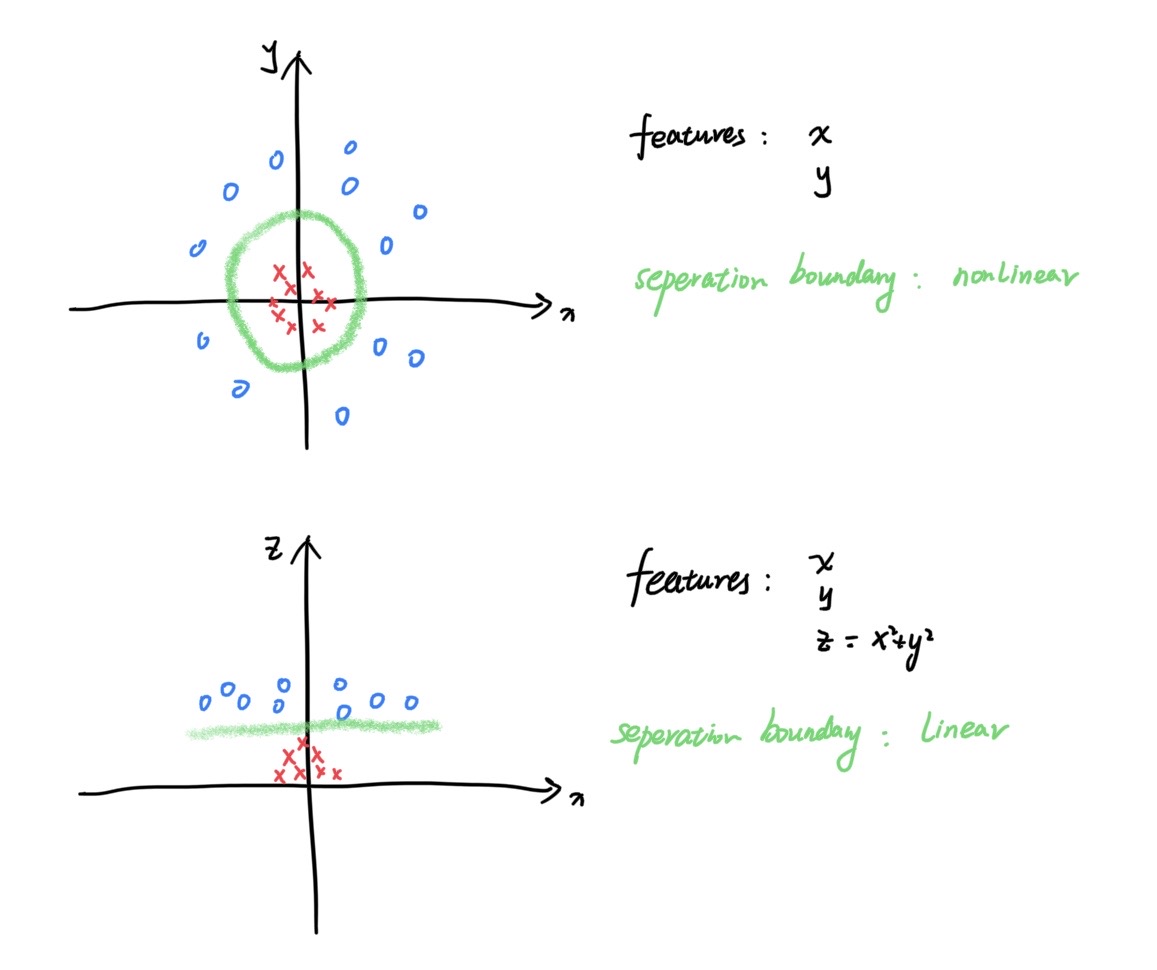 y
features : x
y
seperation boundary : nonlinear
x
z
features : x
y
z = x²+y²
seperation boundary : linear
x